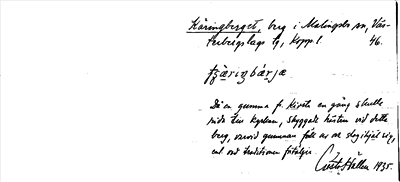 Käringberget, berg i Malingsbo sn, Väs-
terbergslags tg, Kopp. l. 46.
Då en gumma fr. en gång skulle
rida till kyrkan, skyggade hästen vid detta
berg, varvid gumman föll av och slog ihjäl sig,
enl. vad traditionen förtäljer.
Gösta Hallén 1935.